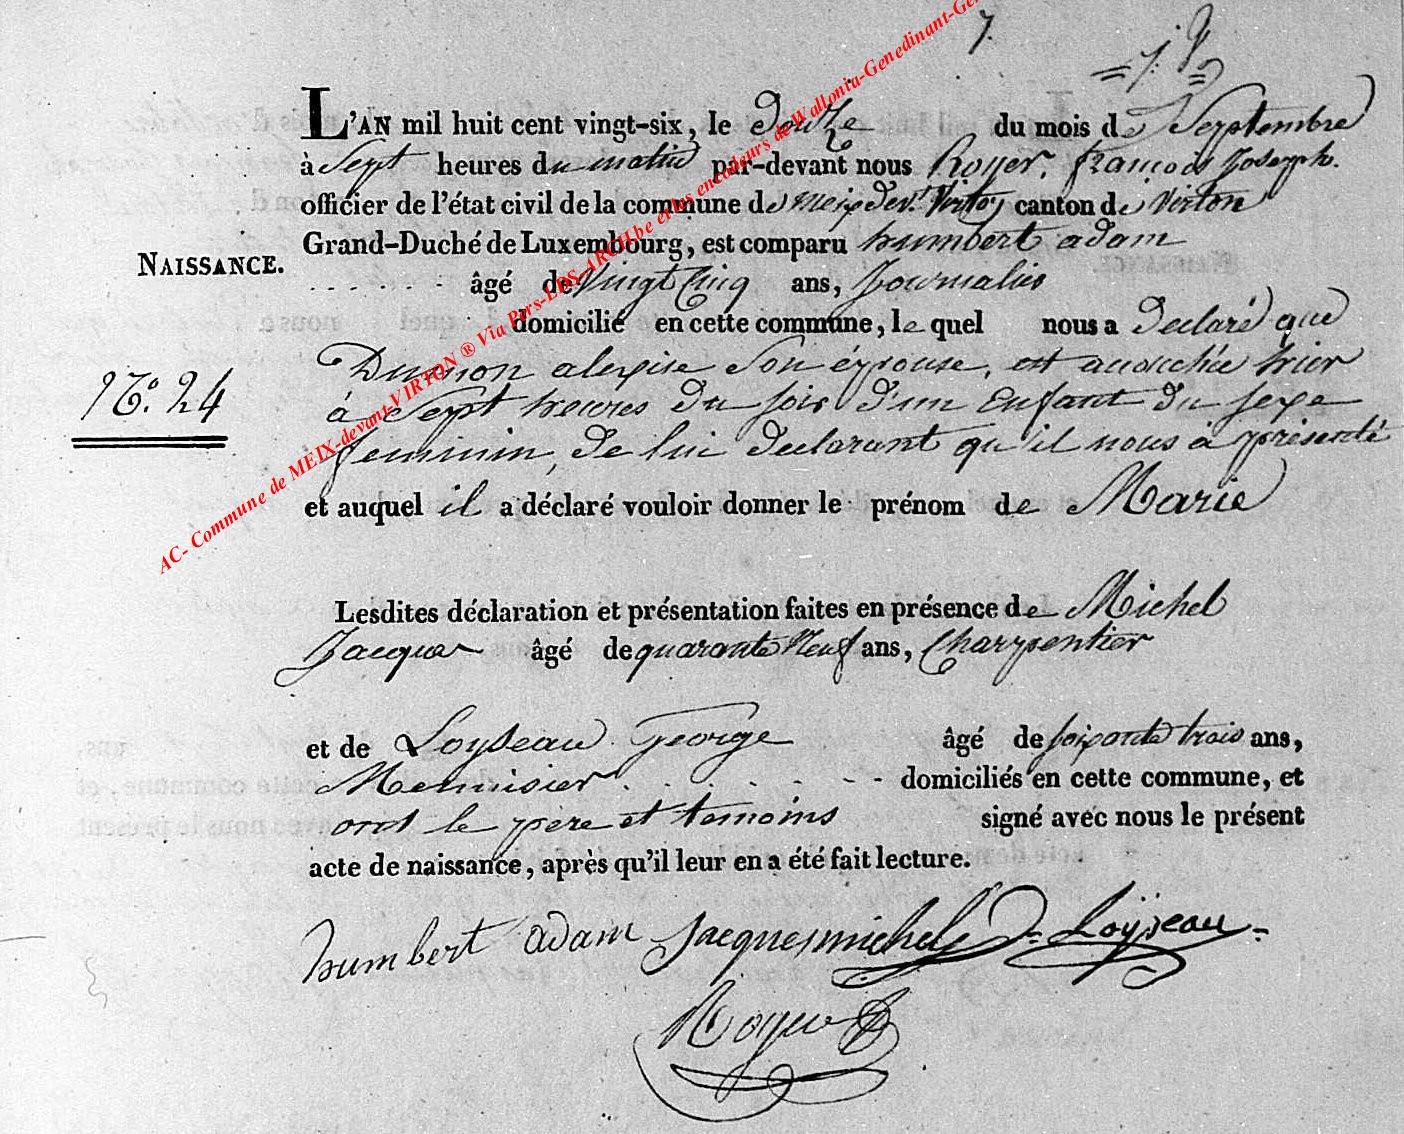 7.
=7.=
L'AN mil huit cent vingt-six, le Douze du mois de Septembre
à Sept heures du matin par-devant nous Royer, françois Joseph.
officier de l'état civil de la commune de meix devt. Virton canton de Virton
Grand-Duché de Luxembourg, est comparu humbert adam
NAISSANCE.
âgé de Vingt Cinq ans, Journalier
domicilié en cette commune, le quel nous a Declaré que
alexise Son épouse, est accouchée hier
No. 24
à Sept heures Du soir D'un Enfant Du sexe
feminin, De lui Declarant qu'il nous à présenté
et auquel il a déclaré vouloir donner le prénom de Marie
Lesdites déclaration et présentation faites en présence de Michel
Jacques âgé de quarante Neuf ans, Charpentier
et de Loyseau George âgé de soixante trois ans,
Menuisier domiciliés en cette commune, et
ont le père et temoins signé avec nous le présent
acte de naissance, après qu'il leur en a été fait lecture.
humbert adam Jacques michel Loÿseau
Royer
AC- Commune de MEIX-devant-VIRTON ® Via Pers-LDS-ARCH.be et les encodeurs de Wallonia-Genedinant-Gen